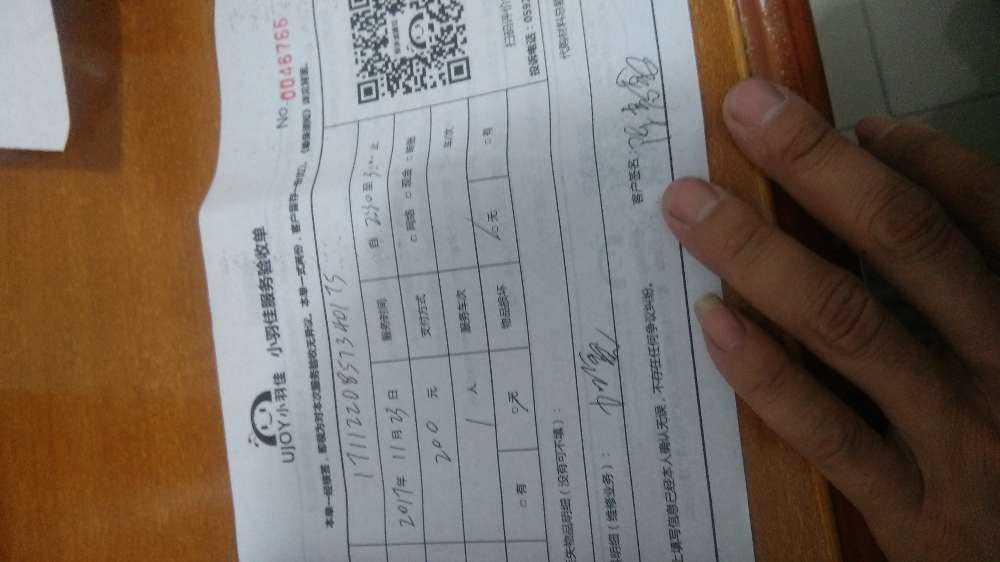 No. 0046766
UJOY小羽佳 小羽佳服务验收单
本单一经签署,即视为对本次服务验收无异议。本单一式两份,客户留存一份
1711220857340175
2017年11月23日 服务时间 自 2:30 至 3:00 止
200 元 支付方式 □ 网络 □ 现金 □ 转账
1 人 服务车次 车次
□ 有 □ 无 物品损坏 □ 无 □ 有
扫码评价
投诉电话:059
失物品明细(没有可不填):
代购材料
明细(维修业务):
客户签名:
上填写信息已经本人确认无误,不存在任何争议纠纷。